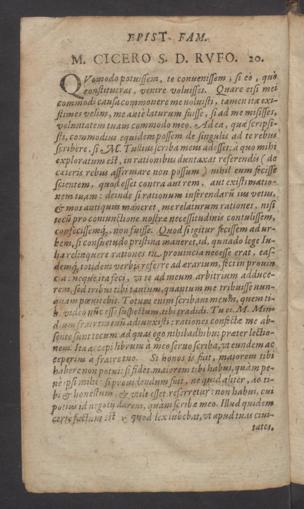 EPIST. FAM.
M. CICERO S. D. RVFO. 20.
QVomodo potuissem, te conuenissem, si eò, quò
constitueras, venire voluisses. Quare etsi mei
commodi causa commouere me noluisti, tamen ita exi-
stimes velim, me antelaturum fuisse, si ad me misisses,
voluntatem tuam commodo meo. Ad ea, quæ scripsi-
sti, commodius equidem possem de singulis ad te rebus
scribere, si M. Tullius scriba meus adesset, à quo mihi
exploratum est, in rationibus duntaxat referendis (de
cæteris rebus affirmare non possum) nihil eum fecisse
scientem, quod esset contra aut rem, aut existimatio-
nem tuam: deinde si rationum inferendarũ ius vetus,
& mos antiquus maneret, me relaturum rationes, nisi
tecũ pro coniunctione nostræ necessitudinis contulissem,
confecissemq́;, non fuisse. Quod igitur fecissem ad ur-
bem, si consuetudo pristina maneret, id, quando lege Iu-
lia relinquere rationes in prouincia necesse erat, eas-
demq́; totidem verbis referre ad ærarium, feci in prouin-
cia: neque ita feci, vt te ad meum arbitrium adduce-
rem, sed tribui tibi tantum, quantum me tribuisse nun-
quam pœnitebit. Totum enim scribam meum, quem ti-
bi video nũc esse suspectum, tibi tradidi. Tu ei M. Min-
dium fratrem tuũ adiunxisti: rationes confectæ me ab-
sente sunt tecum ad quas ego nihil adhibui præter lectio-
nem. Ita accepi librum à meo seruo scriba, vt eundem ac-
ceperim à fratre tuo. Si honos is fuit, maiorem tibi
habere non potui: si fides maiorem tibi habui, quàm pe-
ne ipsi mihi: si prouidendum fuit, ne quid aliter, ac ti-
bi & honestum, & vtile esset referretur: non habui, cui
potius id negotij darem, quàm scribæ meo. Illud quidem
certè factum est, quod lex iubebat, vt apud duas ciui-
tates,